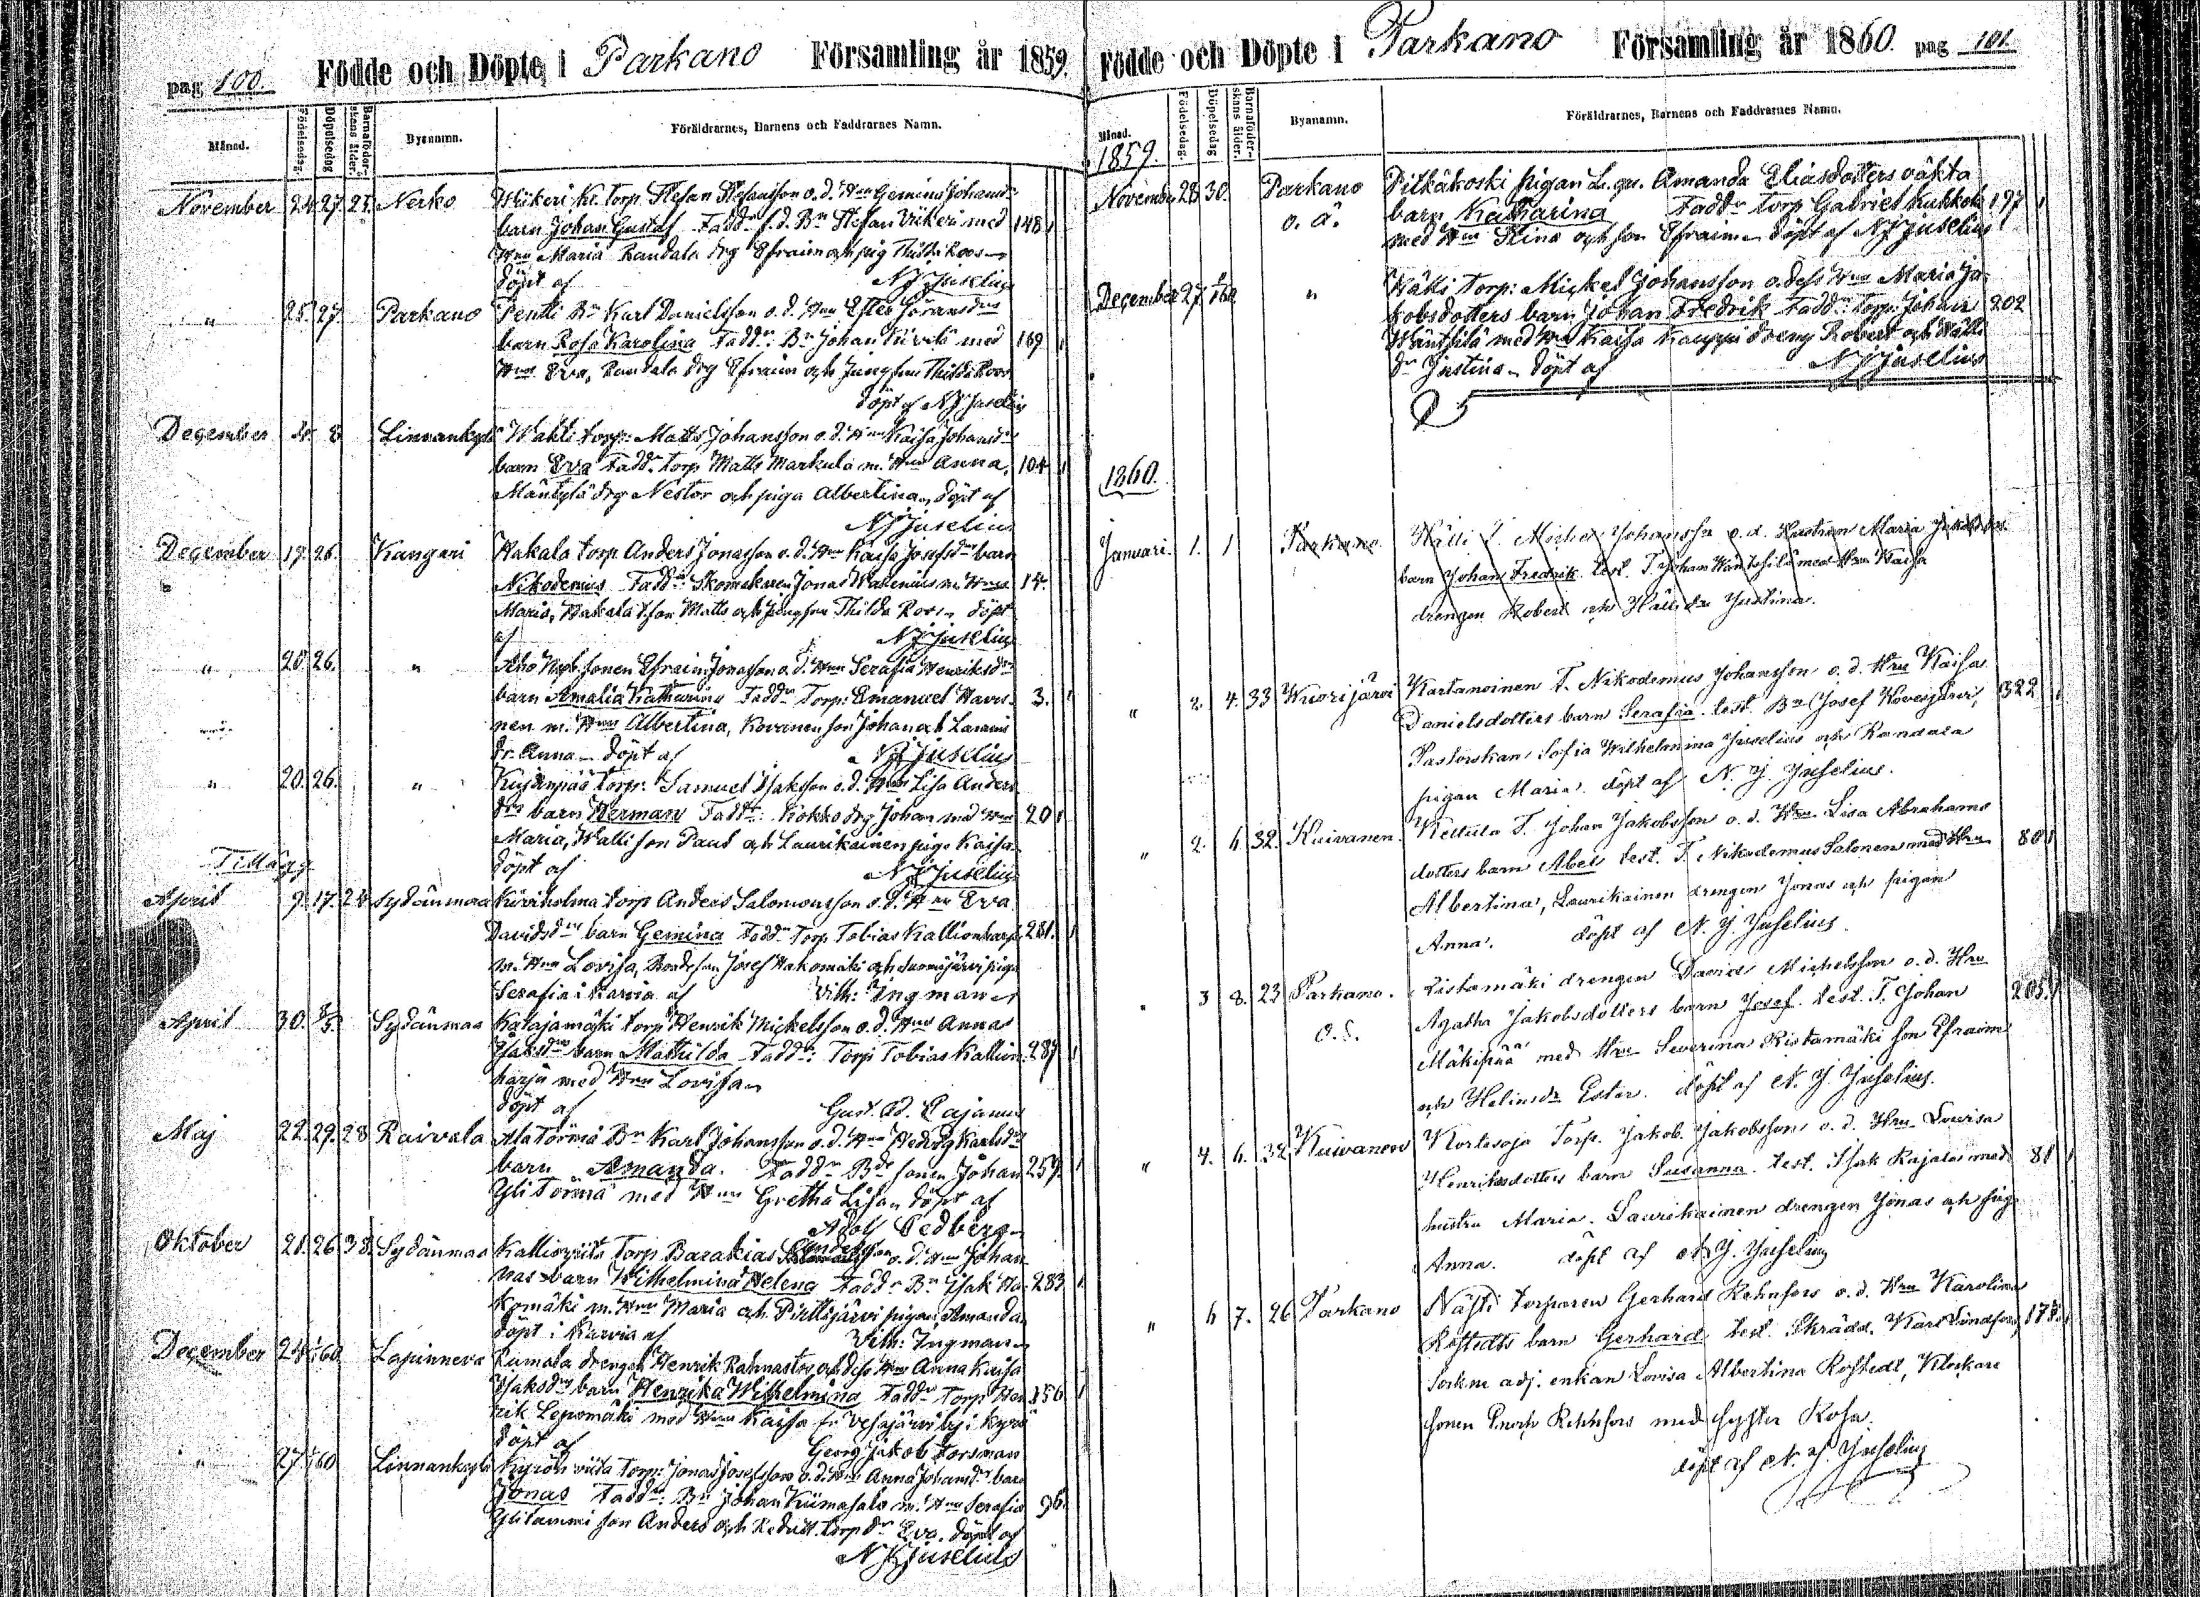 pag 100. Födde och Döpte i Parkano Församling år 1859.
Månad. Födelsedag. Döpelsedag Barnaföder-skans ålder. Byanamn. Föräldrarnes, Barnens och Faddrarnes Namn.
November 24. 27. 27. Nerko Wiikeri Kr. Torp. Stefan Stefansson o. d. Hru Gemina Johansdr
barn Johan Gustaf Faddr f.d. Bn Stefan Vikeri med 148
Hru Maria Randala drg Efraim och pig Thilda Roos
döpt af NJJuselius
" 25. 27. Parkano Pentti Bn Karl Danielsson o. d. Hru Ester Göransdrs
barn Rosa Karolina Faddr: Bn Johan Kivelä med 169
Hru Eva, Randala drg Efraim och Jungfrun Thilda Roos
döpt af NJ Juselius
December 4. 8 Linnankylä Wahli torp: Matts Johansson o. d. Hru Kaisa Johansdrs
barn Eva Faddr Torp Matts Markula m. Hru Anna, 104
Mäntylä drg Nestor och piga Albertina döpt af
NJJuselius
December 17. 26. Kangari Hakala torp Anders Jonasson o. d. Hru Kaisa Josefsdr barn
Nikodemus Faddr: Skomakaren Jonas Walenius m. Hru 14.
Maria, Hakala t. son Matts och Jungfrun Thilda Roos döpt
af NJJuselius
" 20. 26. " Aho Nyb. sonen Efraim Jonasson o. d. Hru Serafia Henriksdrs
barn Amalia Katharina Faddr Torp: Emanuel Havu- 3.
nen m. Hru Albertina, Kovanen son Johan och
dr. Anna döpt af NJJuselius
" 20. 26. " Kujanpää Torp: Samuel Isaksson o. d. Hru Lisa Anders
drs barn Herman Faddr: Kokko drg Johan med Hru 20
Maria, Walli son Paul och Laurikainen piga Kaisa
döpt af NJJuselius
Tillägg
April 9. 17. 24 Sydänmaa Kiviholma torp Anders Salomonsson o. d. Hru Eva
Davidsdrs barn Gemina Faddr Torp Tobias Kallionharju 281.
m. Hru Lovisa, Bondeson Josef Hakomäki och Suomijärvi piga
Serafia i Karvia af Vilh: Ingman
April 30. 8/5 Sydänmaa Katajamäki torp Henrik Mickelsson o. d. Hru Anna
Isaksdrs barn Mathilda Faddr: Torp Tobias Kallion- 287
harju med Hru Lovisa
döpt af Gust. Ad. Cajanus
Maj 22. 29. 28 Raivala Ala Törmä Bn Karl Johansson o. d. Hru Hedvig Karlsdr
barn Amanda. Faddr Bde sonen Johan 259.
Yli Törmä med Hru Gretha Lisa döpt af
Adolf Cedberg
Oktober 21. 26 38. Sydänmaa Kallioniitä Torp. Barakias o. d. Hru Johan
nas barn Wilhelmina Helena Faddr Bn Isak Ha- 283
komäki m. Hru Maria och pigan Amanda
döpt i Karvia af Vilh: Ingman
December 24. 1/1 60 Lapinneva Rumala drengen Henrik Rahnasto och dess Hru Anna Kaisa
Isaksdrs barn Henrika Wilhelmina Faddr Torp Hen 156
rik Lepomäki med Hru Kaisa fr Vesajärvi by i Kyrö
döpt af Georg Jakob Forsman
" 27. 1/1 60 Linnankylä Kyrön viita Torp: Jonas Josefsson o. d. Hru Anna Johansdr barn
Jonas Faddr: Bn Johan Kiimasalo m. Hru Serafia 96.
Ylitammi son Anders och torp dr Eva. döpt af
NJJuselius
Födde och Döpte i Parkano Församling år 1860. pag 101.
Månad. Födelsedag. Döpelsedag Barnaföder-skans ålder. Byanamn. Föräldrarnes, Barnens och Faddrarnes Namn.
1859.
November 28 30. Parkano Pitkäkoski pigan L. gn. Amanda Eliasdotters oäkta
o. ä. barn Katharina Faddr Torp Gabriel Kuhkola 197
med Hru Stina och son Efraim döpt af NJJuselius
December 27. 1/1 60 " Hälli Torp: Mickel Johansson o. dess Hru Maria Ja-
kobsdotters barn Johan Fredrik Faddr: Torp: Johan 202
Wäntsilä med Hru Kaisa Kauppi dreng Robert och Hälli
dr Justina döpt af NJJuselius
1860.
Januari. 1. 1 Parkano. Hälli T. Michel Johansson o. d. Hustrun Maria Jakobsdrs
barn Johan Fredrik. test. T. Johan Wäntsilä med Hru Kaisa
drengen Robert och Hälli dr Justina.
" 2. 4. 33 Kuorijärvi Kartanoinen T. Nikodemus Johansson o. d. Hru Kaisa
Danielsdotters barn Serafia. test. Bn Josef Koverojärvi, 322
Pastorskan Sofia Wilhelmina Juselius och Randala
pigan Maria. döpt af N. J. Juselius.
" 2. 6. 32. Kuivanen. Kettula T. Johan Jakobsson o. d. Hru Lisa Abrahams
dotters barn Abel test. T. Nikodemus Salonen med Hru 80
Albertina, Laurikainen drengen Jonas och pigan
Anna. döpt af N. J. Juselius.
" 3 8. 23 Parkano. Ristamäki drengen David Michelsson o. d. Hru
Agatha Jakobsdotters barn Josef. test. T. Johan 205.
o. S. Mäkipää med Hru Severina Ristamäki son Efraim
och Helin dr Ester. döpt af N. J. Juselius.
" 4. 6. 32 Kuivanen Kortesoja Torp. Jakob Jakobsson o. d. Hru Lovisa
Henriksdotters barn Susanna. test. Isak Rajala med 81
hustru Maria. Laurikainen drengen Jonas och piga
Anna. döpt af N. J. Juselius
" 6 7. 26 Parkano Näsfi torparen Gerhard Rehnfors o. d. Hru Karolina
Rostedts barn Gerhard test. Skrädd. Karl Lindfors, 175.
Sockne adj. enkan Lovisa Albertina Rostedt, Klockare
sonen Enoch Rehnfors med syster Rosa.
döpt af N. J. Juselius